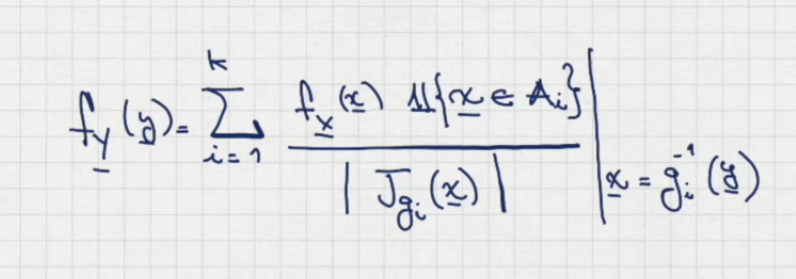 f_Y(y) = \sum_{i=1}^{k} \frac{f_{\underline{X}}(\underline{x}) 𝟙\{\underline{x} ∈ A_i\}}{|J_{g_i}(\underline{x})|} \Big|_{\underline{x} = g_i^{-1}(\underline{y})}